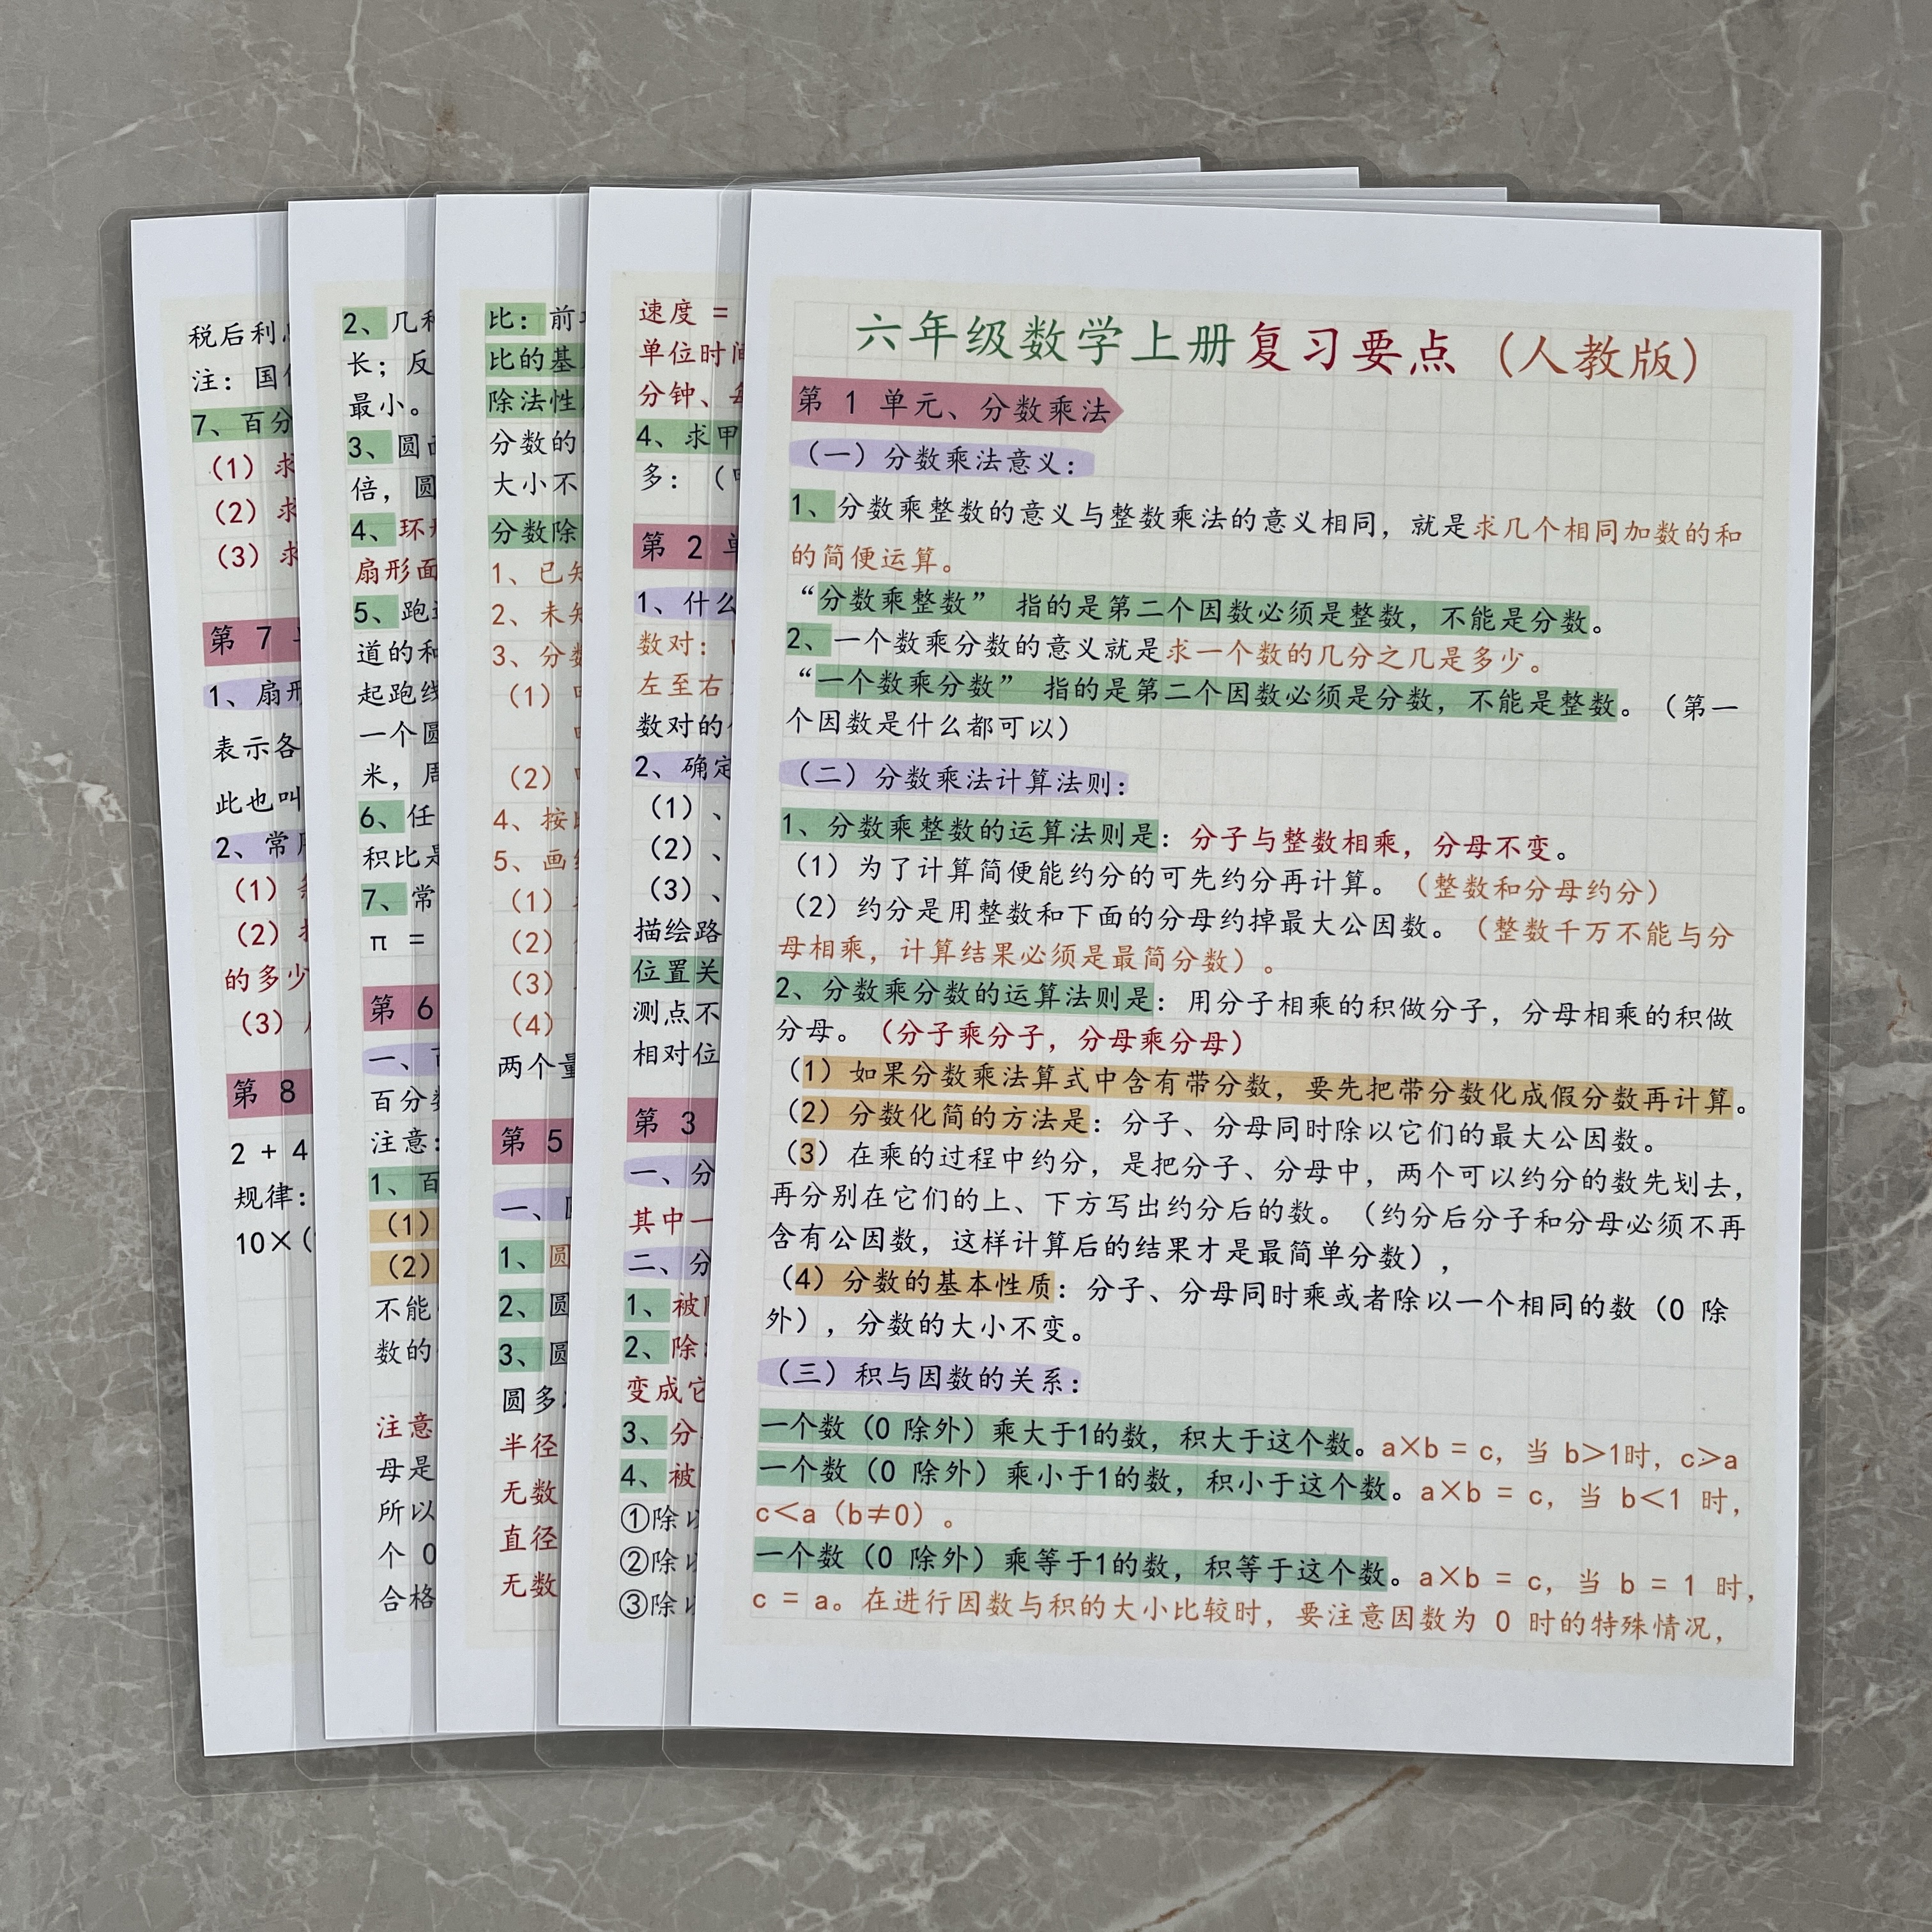 六年级数学上册复习要点（人教版）
第 1 单元、分数乘法
（一）分数乘法意义：
1、分数乘整数的意义与整数乘法的意义相同，就是求几个相同加数的和
的简便运算。
“分数乘整数” 指的是第二个因数必须是整数，不能是分数。
2、一个数乘分数的意义就是求一个数的几分之几是多少。
“一个数乘分数” 指的是第二个因数必须是分数，不能是整数。（第一
个因数是什么都可以）
（二）分数乘法计算法则：
1、分数乘整数的运算法则是：分子与整数相乘，分母不变。
（1）为了计算简便能约分的可先约分再计算。（整数和分母约分）
（2）约分是用整数和下面的分母约掉最大公因数。（整数千万不能与分
母相乘，计算结果必须是最简分数）。
2、分数乘分数的运算法则是：用分子相乘的积做分子，分母相乘的积做
分母。（分子乘分子，分母乘分母）
（1）如果分数乘法算式中含有带分数，要先把带分数化成假分数再计算。
（2）分数化简的方法是：分子、分母同时除以它们的最大公因数。
（3）在乘的过程中约分，是把分子、分母中，两个可以约分的数先划去，
再分别在它们的上、下方写出约分后的数。（约分后分子和分母必须不再
含有公因数，这样计算后的结果才是最简单分数），
（4）分数的基本性质：分子、分母同时乘或者除以一个相同的数（0 除
外），分数的大小不变。
（三）积与因数的关系：
一个数（0 除外）乘大于1的数，积大于这个数。a×b = c，当 b>1时，c>a
一个数（0 除外）乘小于1的数，积小于这个数。a×b = c，当 b<1 时，
c<a（b≠0）。
一个数（0 除外）乘等于1的数，积等于这个数。a×b = c，当 b = 1 时，
c = a。在进行因数与积的大小比较时，要注意因数为 0 时的特殊情况，
速度 =
单位时间
分钟、每
4、求甲
多：（
第 2 单
1、什么
数对：
左至右
数对的
2、确定
（1）、
（2）、
（3）、
描绘路
位置关
测点不
相对位
第 3
一、分
其中一
二、分
1、被除
2、除
变成它
3、分
4、被
①除以
②除以
③除以
比：前
比的基
除法性
分数的
大小不
分数除
1、已知
2、未知
3、分数
（1）
（2）
4、按比
5、画
（1）
（2）
（3）
（4）
两个量
第 5
一、圆
1、圆
2、圆
3、圆
圆多
半径
无数
直径
无数
2、几种
长；反
最小。
3、圆面
倍，圆
4、环形
扇形面
5、跑道
道的和
起跑线
一个圆
米，周
6、任
积比是
7、常
π =
第 6
一、百
百分数
注意：
1、百
（1）
（2）
不能
数的
注意
母是
所以
个 0
合格
税后利息
注：国债
7、百分
（1）求
（2）求
（3）求
第 7 单
1、扇形
表示各
此也叫
2、常用
（1）条
（2）折
的多少
（3）
第 8
2 + 4
规律：
10×(